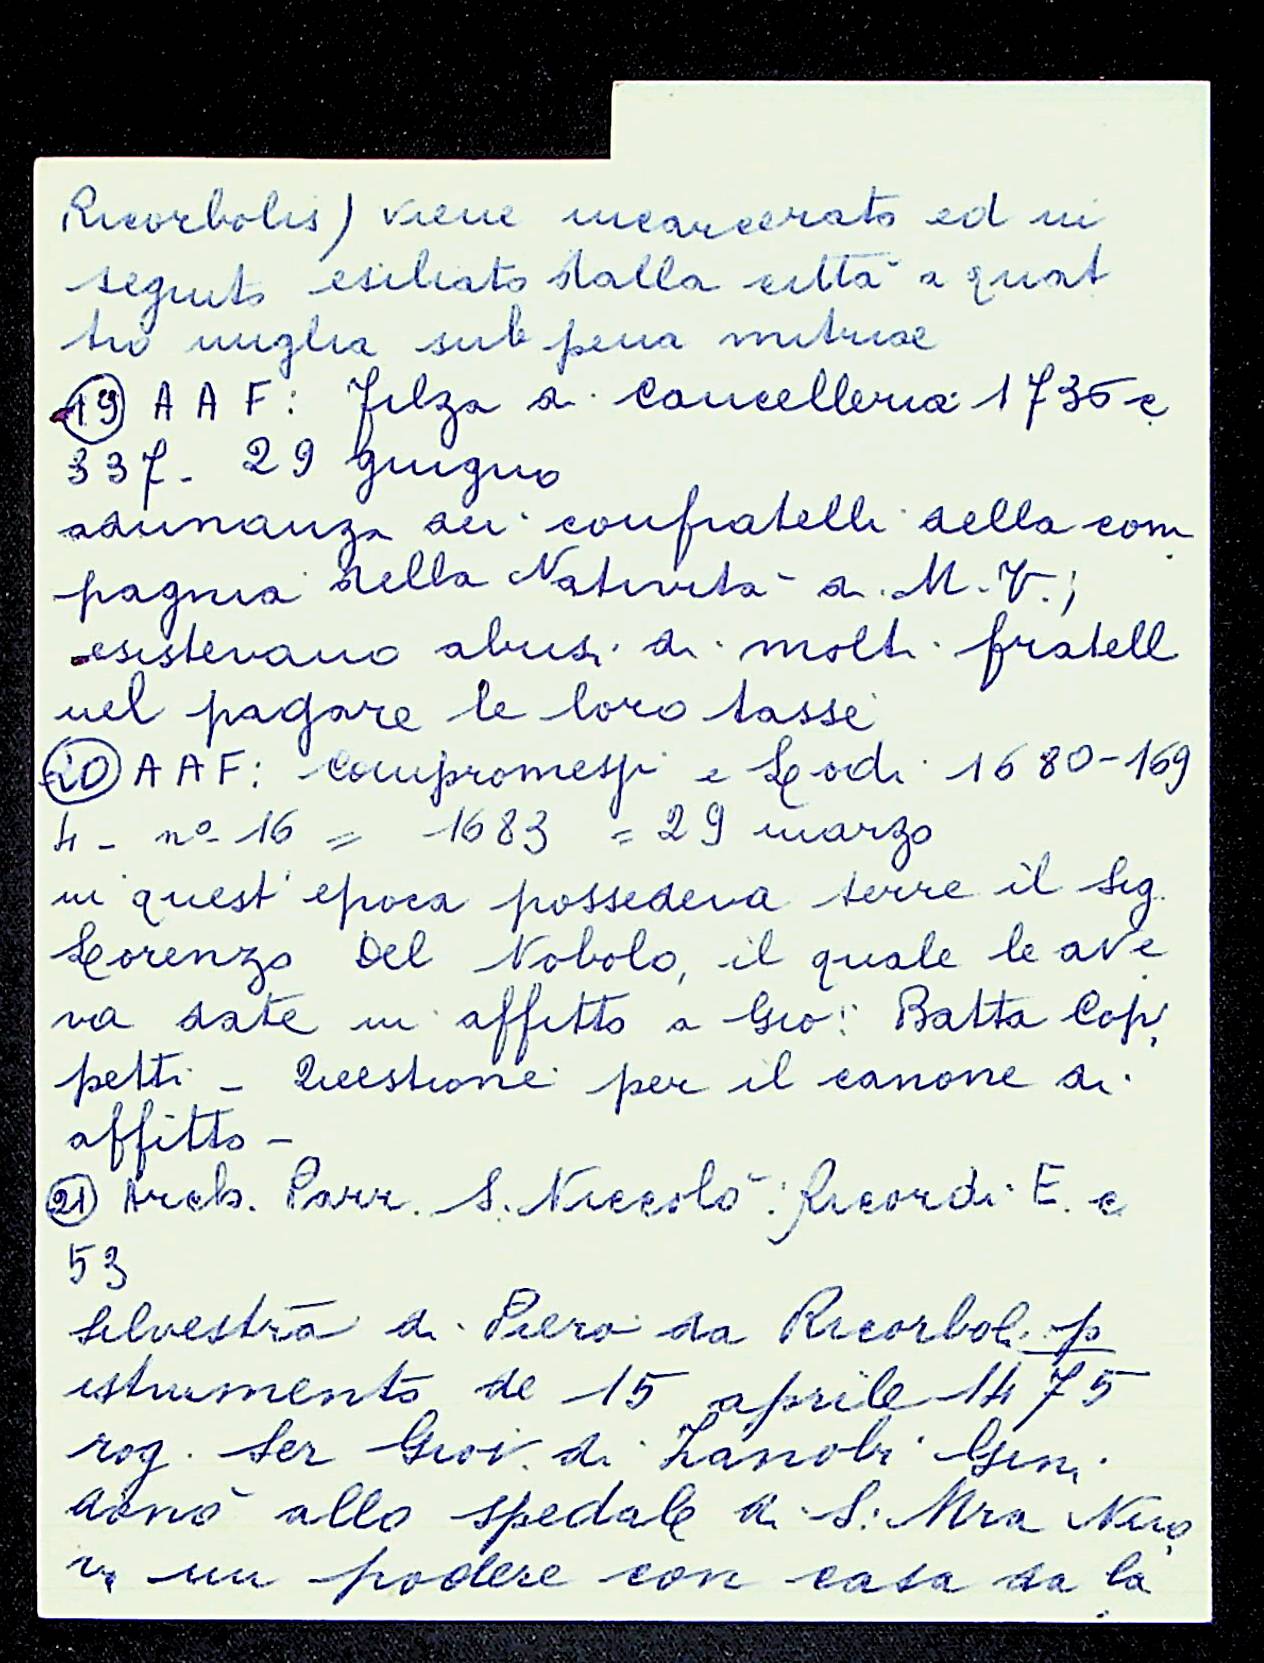 Ricorbolis) viene incarcerato ed in
seguito esiliato dalla città a quat
tro miglia sub pena mitriae
19 A A F: Filza di Cancelleria 1735 c
337 - 29 giugno
adunanza dei confratelli della com
pagnia della Natività di M. V.;
esistevano abusi di molti fratell
nel pagare le loro tasse
20 A A F: Compromessi e Lodi 1680-169
4 - nº 16 = 1683 = 29 marzo
in quest'epoca possedeva terre il Sig.
Lorenzo Del Nobolo, il quale le ave
va date in affitto a Gio: Batta Cop
petti - Questione per il canone di
affitto -
21 Arch. Parr. S. Niccolò: Ricordi E. c
53
Silvestra di Piero da Ricorboli p
istrumento de 15 aprile 1475
rog. Ser Giov. di Zanobi Gini
donò allo spedale di S. Mra Nuo
va un podere con casa da la